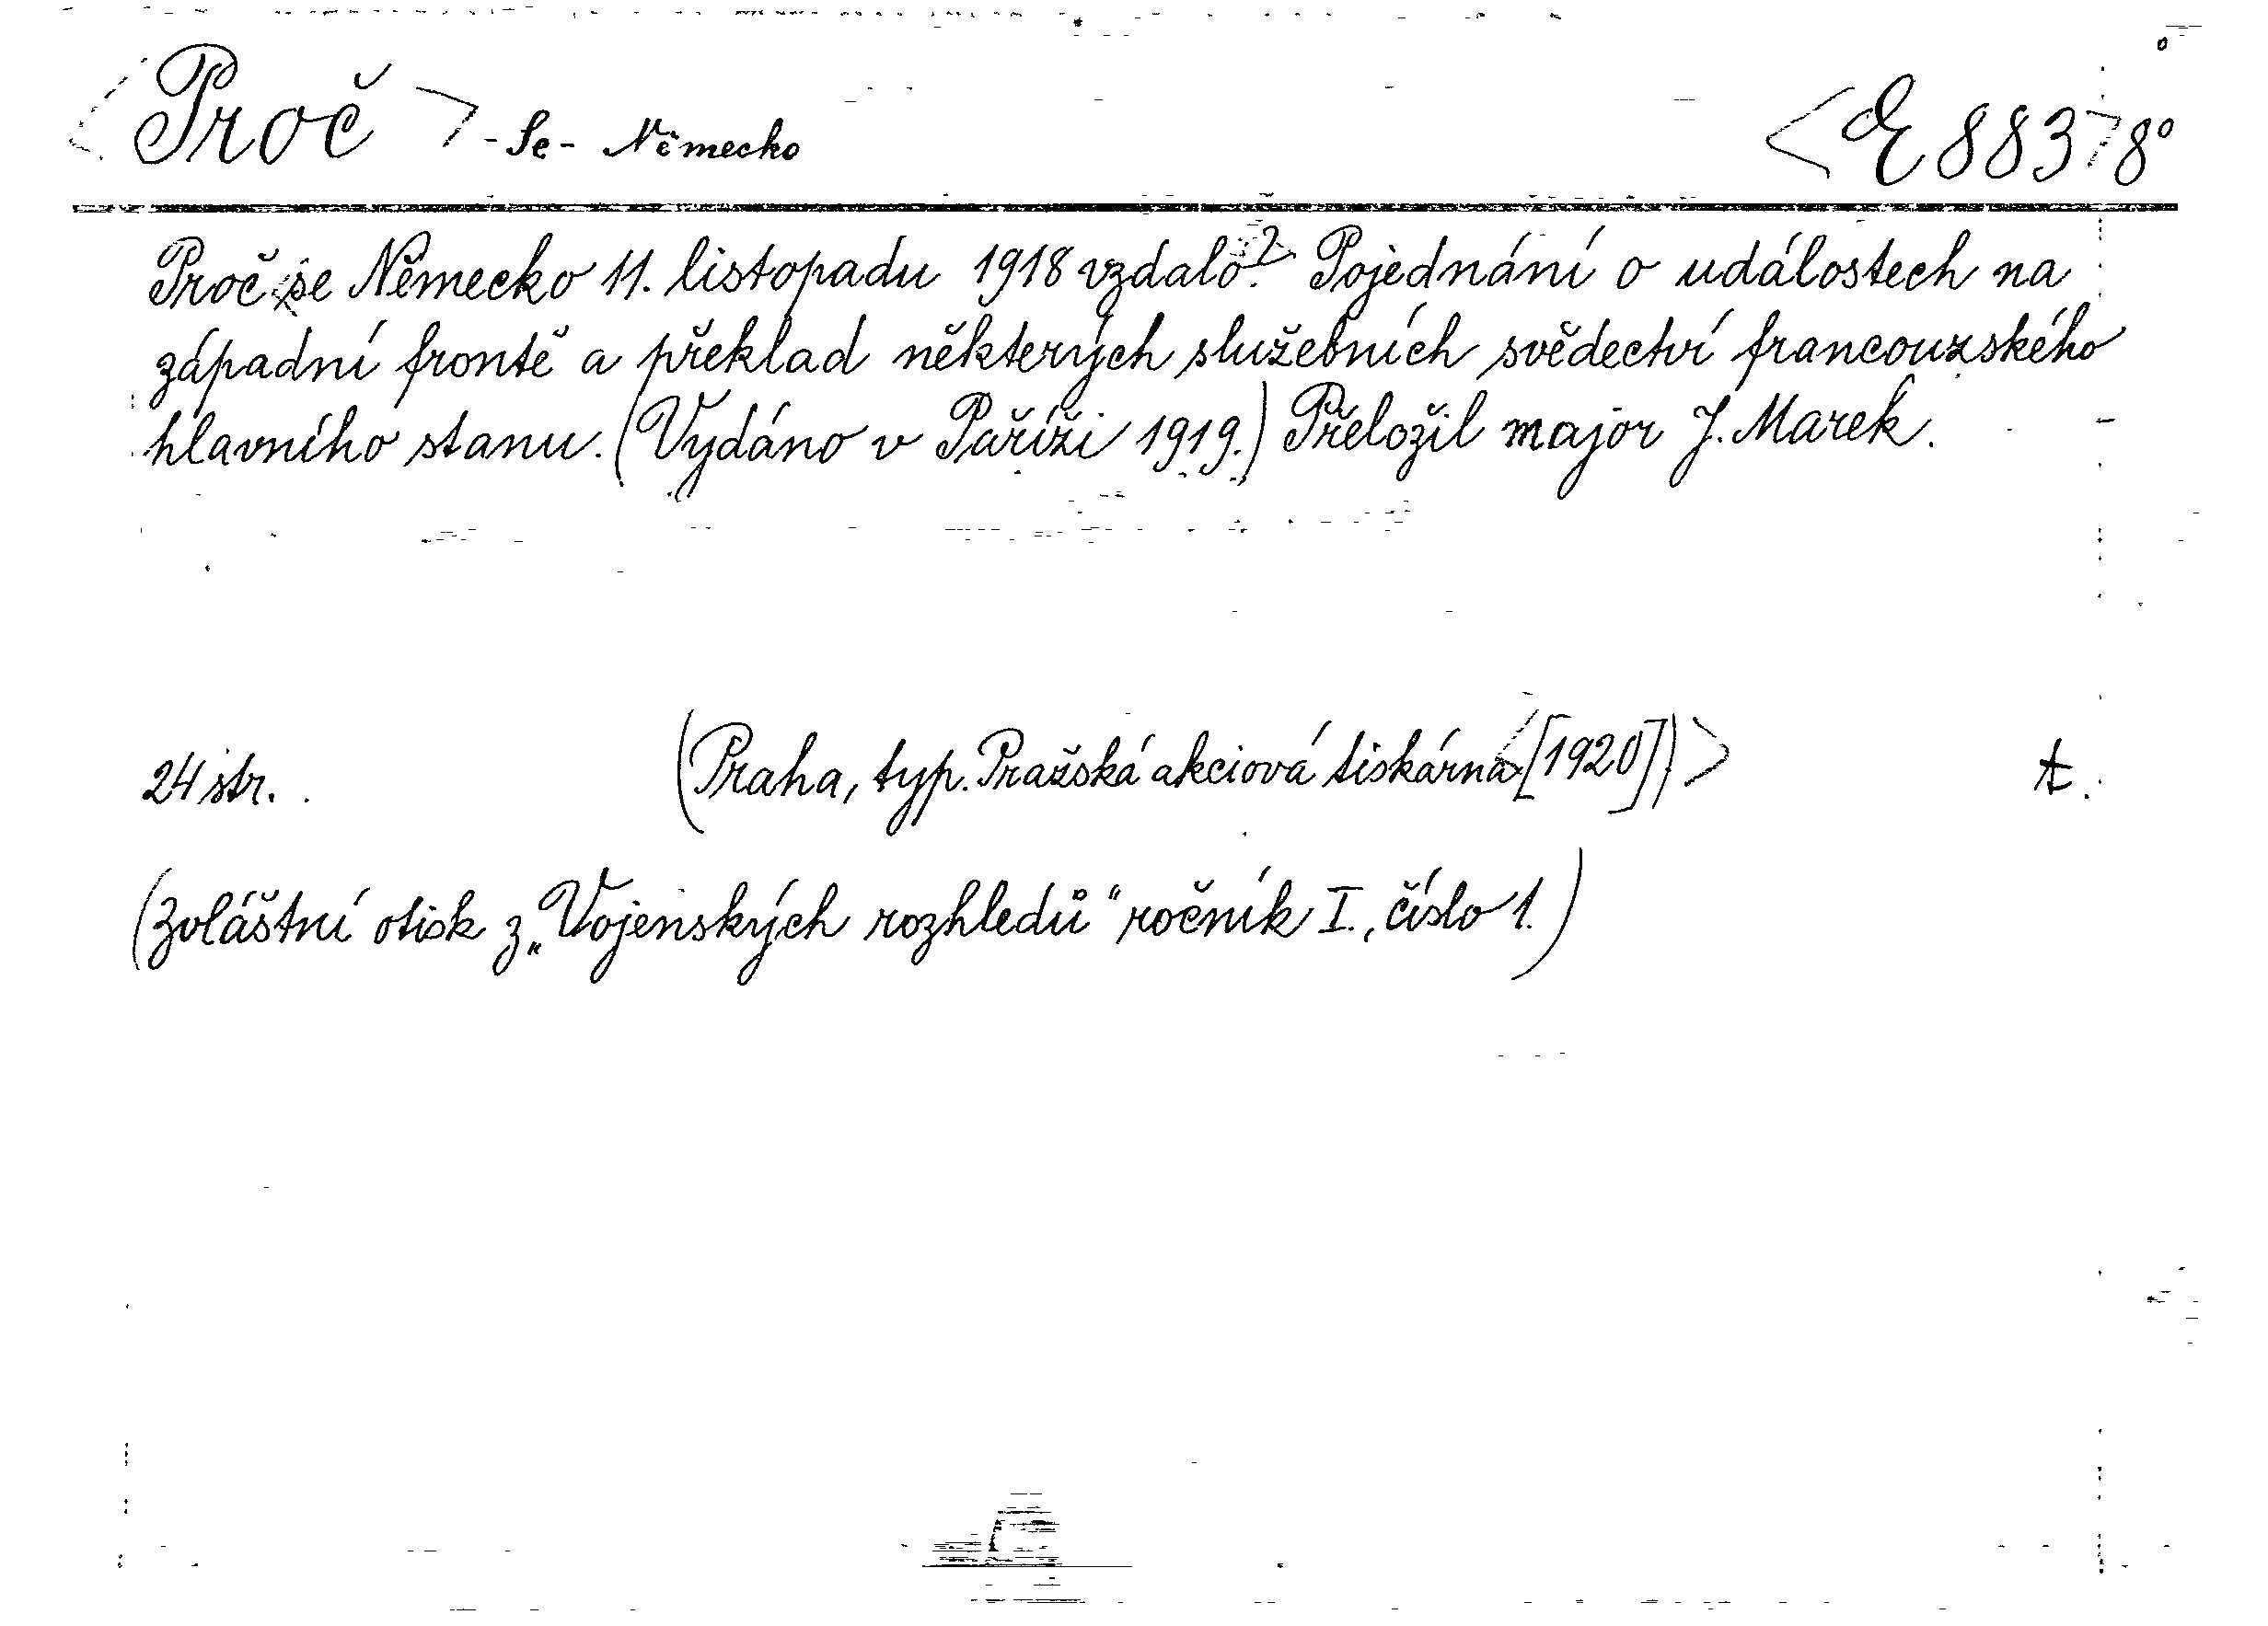 <Proč> -Se- Německo <E 883> 8°
Proč se Německo 11. listopadu 1918 vzdalo? Pojednání o událostech na
západní frontě a překlad některých služebních svědectví francouzského
hlavního stanu. (Vydáno v Paříži 1919.) Přeložil major J. Marek.
24 str. (Praha, typ. Pražská akciová tiskárna <[1920])> t.
(Zvláštní otisk z „Vojenských rozhledů“ ročník I., číslo 1.)